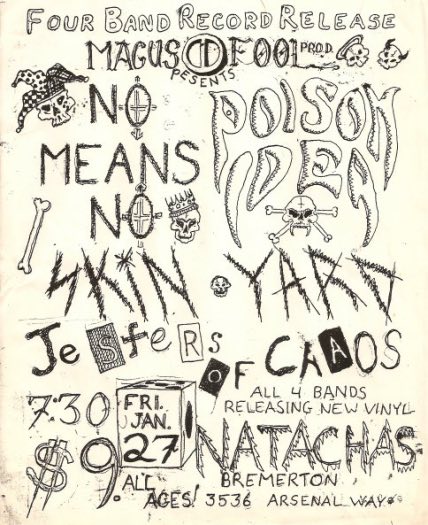 FOUR BAND RECORD RELEASE
MAGUS FOOL PROD.
PESENTS
NO MEANS NO
POISON IDEA
SKIN YARD
JeSTeRs OF CHAOS
ALL 4 BANDS
RELEASING NEW VINYL
7:30
FRI.
JAN.
27
NATACHAS
$9.
ALL AGES!
BREMERTON
3536 ARSENAL WAY